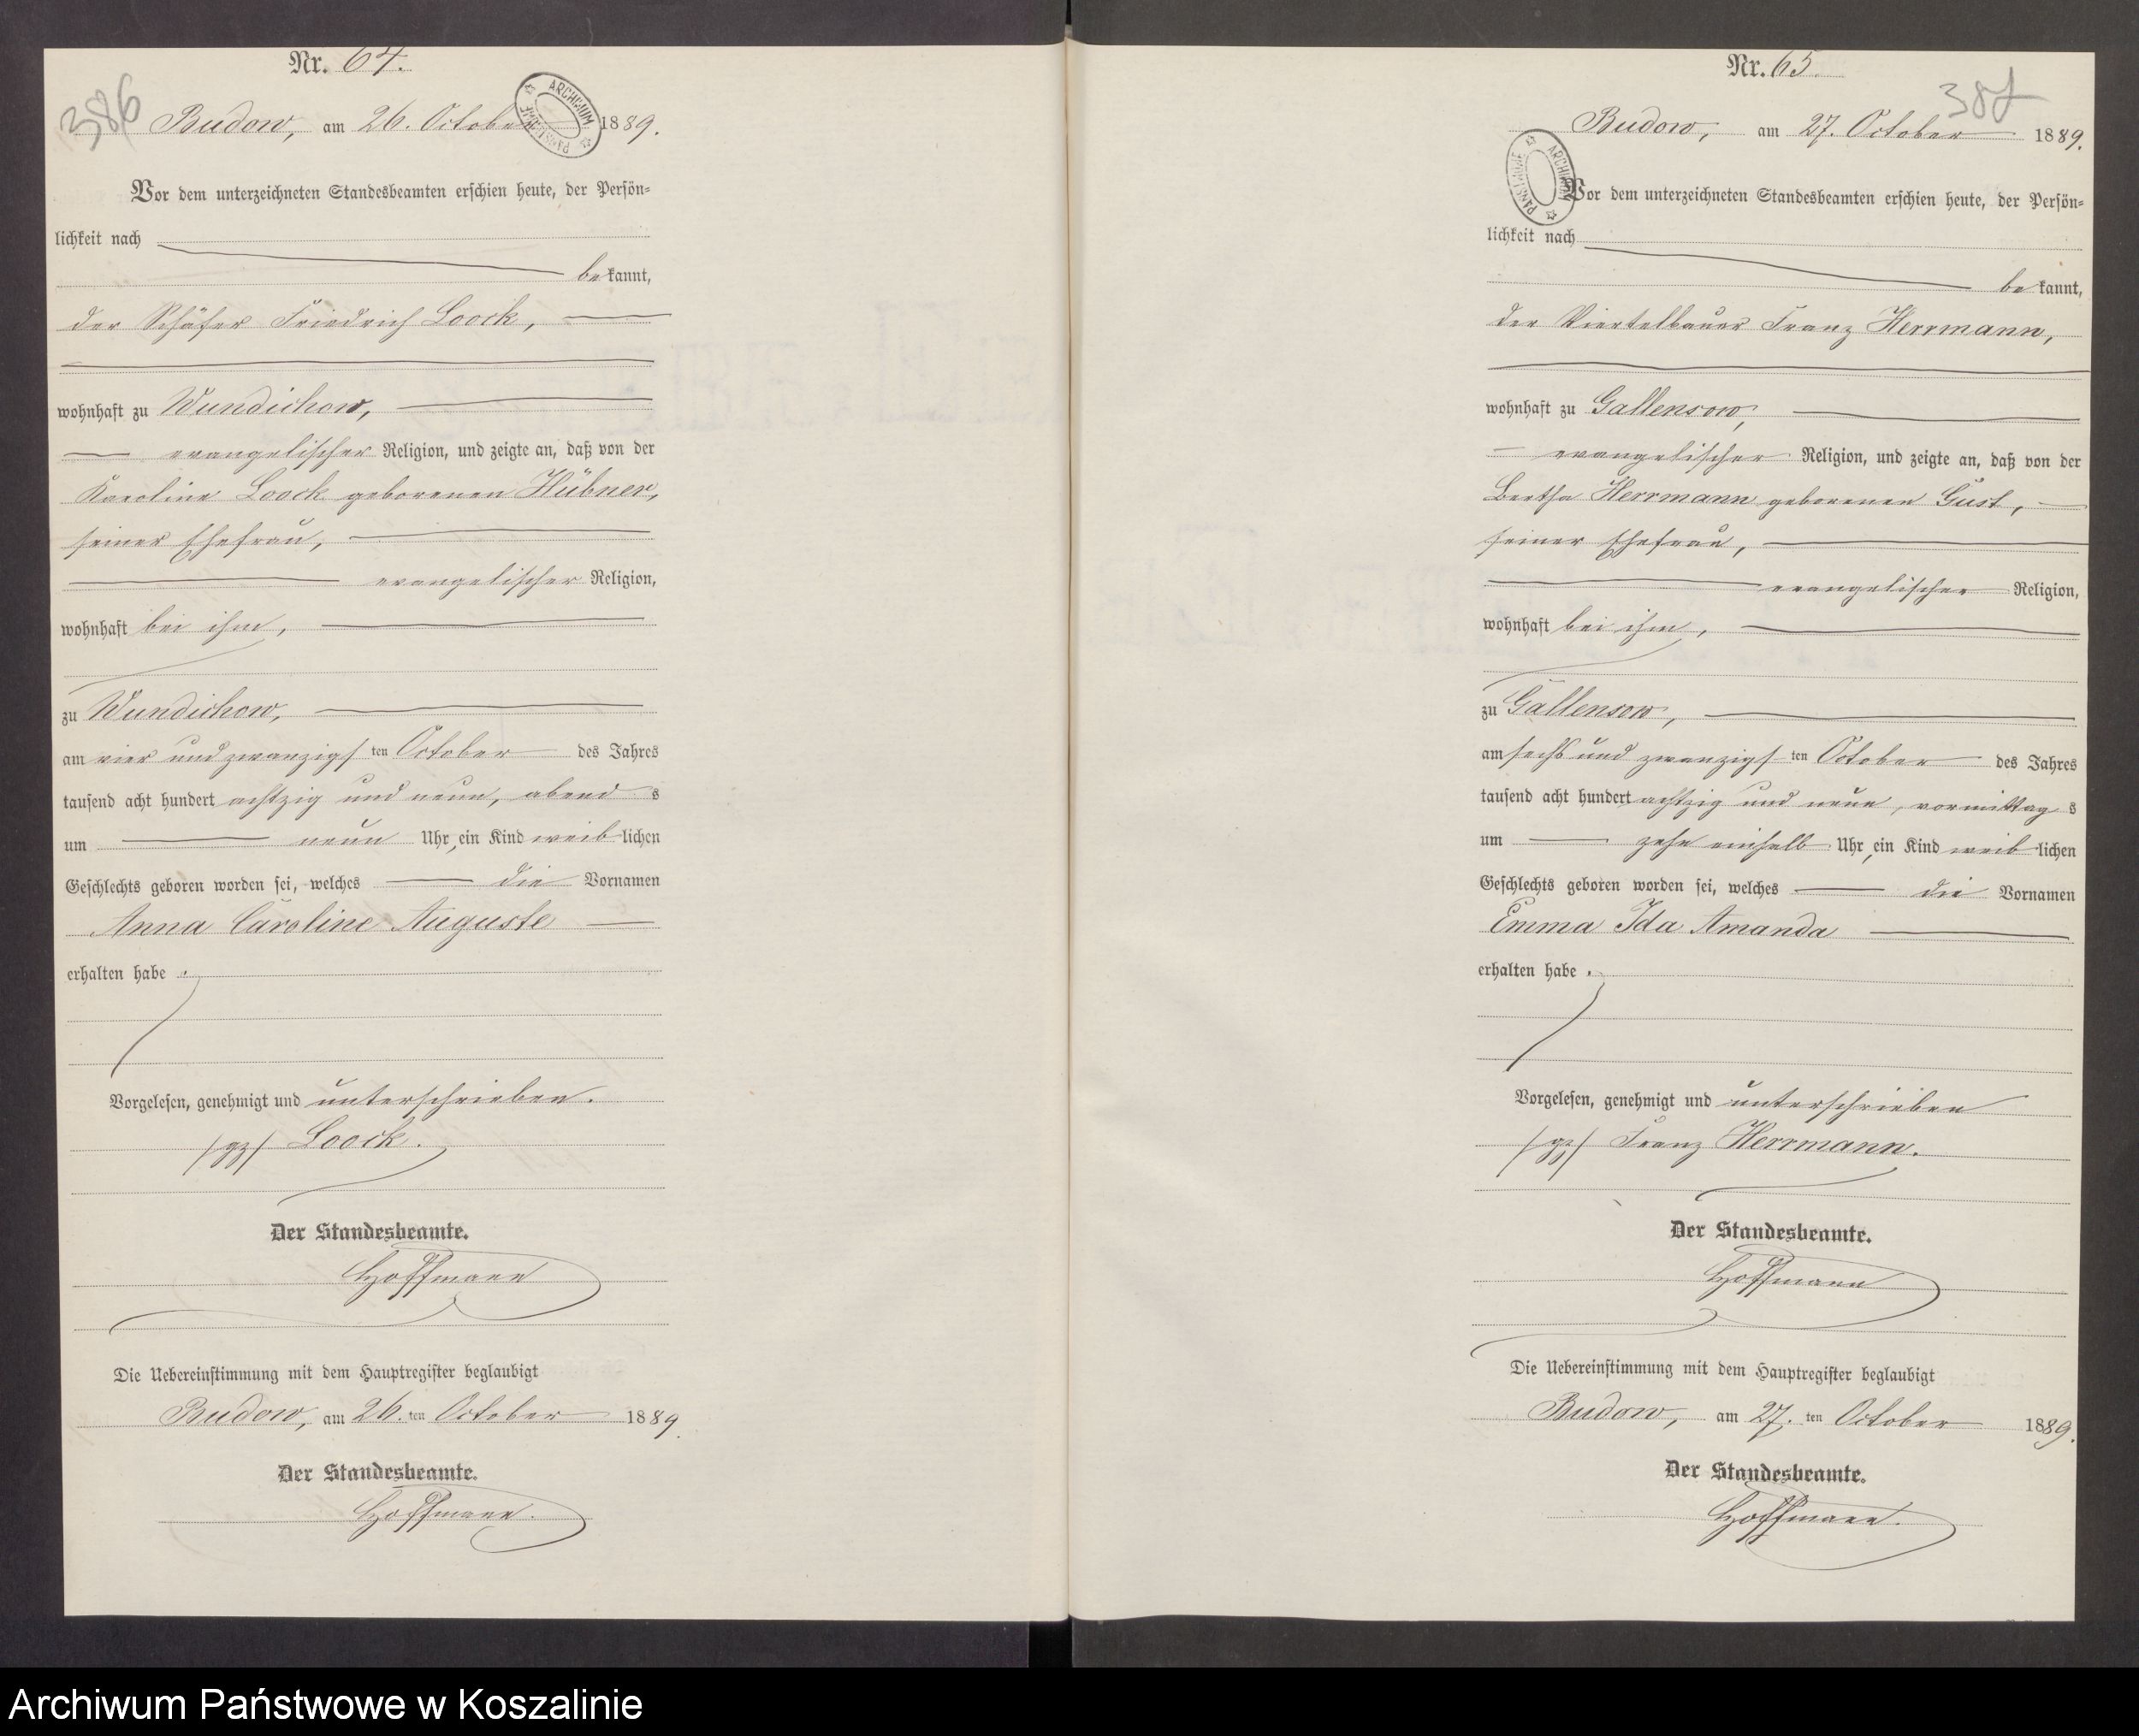 Nr. 64.
386
Budow, am 26. October 1889.
ARCHIWUM PAŃSTWOWE
Vor dem unterzeichneten Standesbeamten erschien heute, der Persön=
lichkeit nach
bekannt,
der Schäfer Friedrich Loock,
wohnhaft zu Wundichow,
evangelischer Religion, und zeigte an, daß von der
Karoline Loock geborenen Hübner,
seiner Ehefrau,
evangelischer Religion,
wohnhaft bei ihm,
zu Wundichow,
am vier und zwanzigsten October des Jahres
tausend acht hundert achtzig und neun, abends
um neun Uhr, ein Kind weiblichen
Geschlechts geboren worden sei, welches die Vornamen
Anna Caroline Auguste
erhalten habe.
Vorgelesen, genehmigt und unterschrieben.
/gz/ Loock.
Der Standesbeamte.
Hoffmann
Die Uebereinstimmung mit dem Hauptregister beglaubigt
Budow, am 26.ten October 1889.
Der Standesbeamte.
Hoffmann.
Nr. 65.
387
Budow, am 27. October 1889.
ARCHIWUM PAŃSTWOWE
Vor dem unterzeichneten Standesbeamten erschien heute, der Persön=
lichkeit nach
bekannt,
der Viertelbauer Franz Herrmann,
wohnhaft zu Gallensow,
evangelischer Religion, und zeigte an, daß von der
Bertha Herrmann geborenen Gust,
seiner Ehefrau,
evangelischer Religion,
wohnhaft bei ihm,
zu Gallensow,
am sechs und zwanzigsten October des Jahres
tausend acht hundert achtzig und neun, vormittags
um zehn einhalb Uhr, ein Kind weiblichen
Geschlechts geboren worden sei, welches die Vornamen
Emma Ida Amanda
erhalten habe.
Vorgelesen, genehmigt und unterschrieben
/gz/ Franz Herrmann.
Der Standesbeamte.
Hoffmann
Die Uebereinstimmung mit dem Hauptregister beglaubigt
Budow, am 27.ten October 1889.
Der Standesbeamte.
Hoffmann.
Archiwum Państwowe w Koszalinie